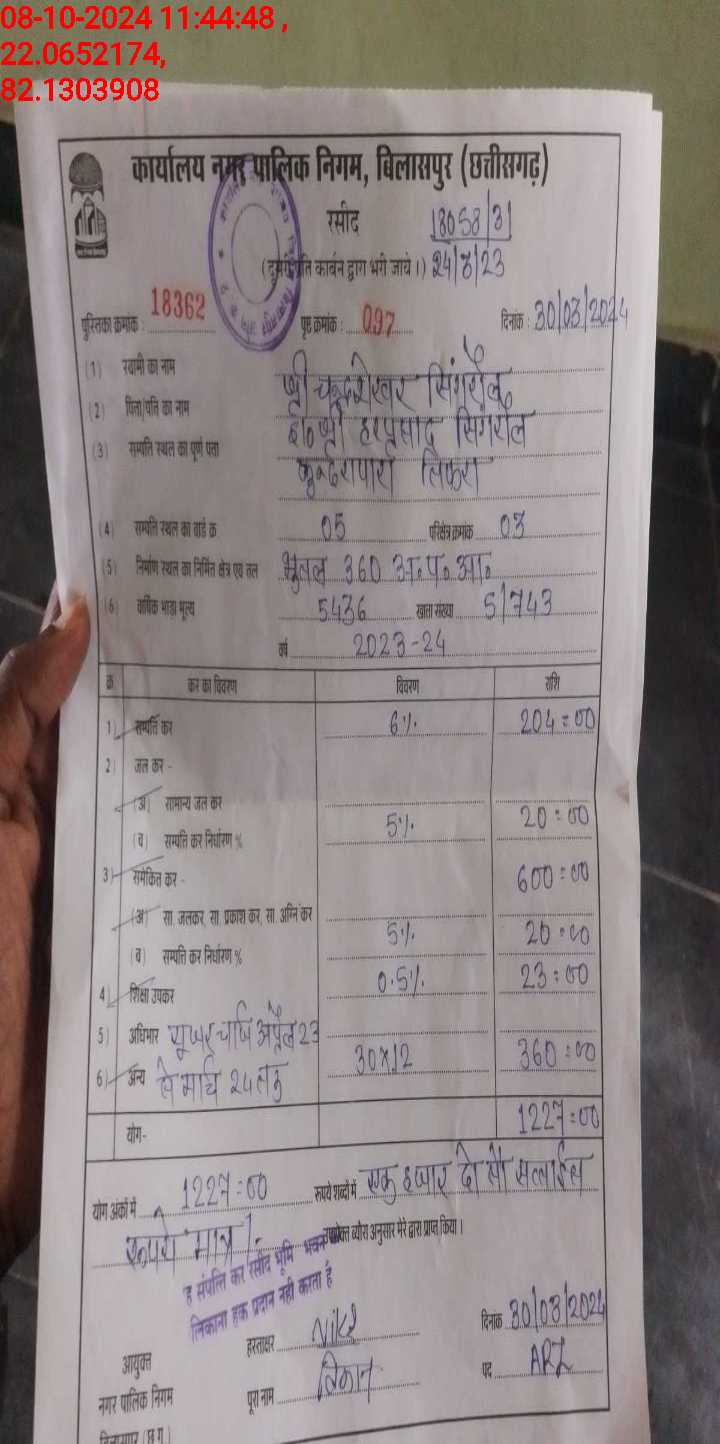 08-10-2024 11:44:48 ,
22.0652174,
82.1303908
कार्यालय नगर पालिक निगम, बिलासपुर (छत्तीसगढ़)
रसीद 18058/31
(दूसरी प्रति कार्बन द्वारा भरी जाये।) 24/8/23
पुस्तिका क्रमांक : 18362 पृष्ठ क्रमांक : 097 दिनांक : 30/03/2024
(1) स्वामी का नाम श्री चन्द्रशेखर सिंगरौल
(2) पिता/पति का नाम श्री हरप्रसाद सिंगरौल
(3) सम्पत्ति स्थल का पूर्ण पता तिफरा
(4) सम्पत्ति स्थल का वार्ड क्र 05 परिक्षेत्र क्रमांक 03
(5) निर्माण स्थल का निर्मित क्षेत्र एवं तल भूतल 360 आ०
(6) वार्षिक भाड़ा मूल्य 5436 खाता संख्या 51743
वर्ष 2023-24
क्र कर का विवरण विवरण राशि
1) सम्पत्ति कर 6%. 204=00
2) जल कर -
(अ) सामान्य जल कर
(ब) सम्पत्ति कर निर्धारण % 5%. 20=00
3) समेकित कर - 600=00
(अ) सा. जलकर, सा. प्रकाश कर, सा. अग्नि कर
(ब) सम्पत्ति कर निर्धारण % 5%. 20=00
4) शिक्षा उपकर 0.5%. 23=00
5) अधिभार यूजर चार्ज अप्रैल 23
6) अन्य से मार्च 24 तक 30x12 360=00
योग- 1227=00
योग अंकों में 1227=00 रूपये शब्दों में एक हजार दो सौ सत्ताईस
रूपये मात्र/. उपरोक्त ब्यौरा अनुसार मेरे द्वारा प्राप्त किया।
संपत्ति कर रसीद भूमि भवन
हक प्रदान नहीं करता है
दिनांक 30/03/2024
आयुक्त हस्ताक्षर
नगर पालिक निगम पूरा नाम पद
बिलासपुर (छ.ग.)